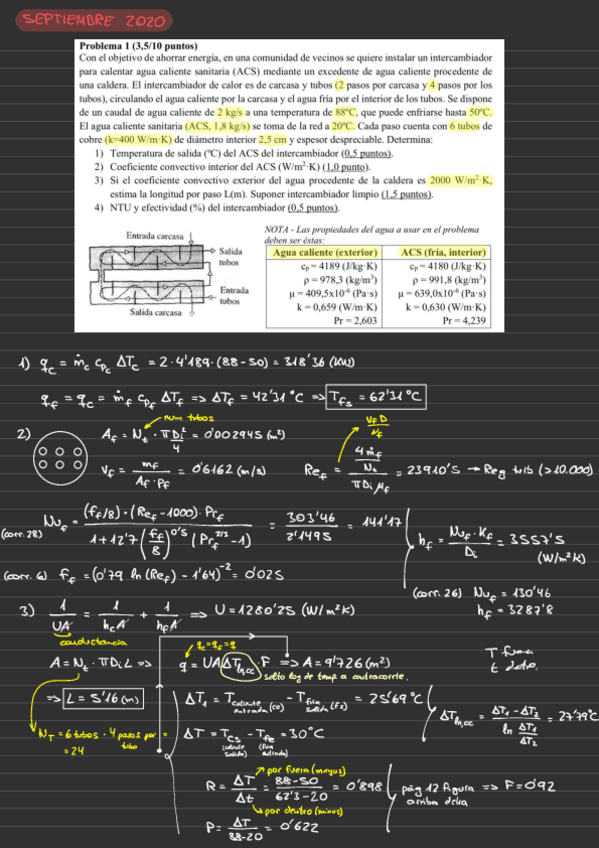 SEPTIEMBRE 2020
Problema 1 (3,5/10 puntos)
Con el objetivo de ahorrar energía, en una comunidad de vecinos se quiere instalar un intercambiador
para calentar agua caliente sanitaria (ACS) mediante un excedente de agua caliente procedente de
una caldera. El intercambiador de calor es de carcasa y tubos (2 pasos por carcasa y 4 pasos por los
tubos), circulando el agua caliente por la carcasa y el agua fría por el interior de los tubos. Se dispone
de un caudal de agua caliente de 2 kg/s a una temperatura de 88ºC, que puede enfriarse hasta 50ºC.
El agua caliente sanitaria (ACS, 1,8 kg/s) se toma de la red a 20ºC. Cada paso cuenta con 6 tubos de
cobre (k=400 W/m·K) de diámetro interior 2,5 cm y espesor despreciable. Determina:
1) Temperatura de salida (ºC) del ACS del intercambiador (0,5 puntos).
2) Coeficiente convectivo interior del ACS (W/m²·K) (1,0 punto).
3) Si el coeficiente convectivo exterior del agua procedente de la caldera es 2000 W/m²·K,
estima la longitud por paso L(m). Suponer intercambiador limpio (1,5 puntos).
4) NTU y efectividad (%) del intercambiador (0,5 puntos).
Entrada carcasa
Salida
tubos
Entrada
tubos
Salida carcasa
NOTA - Las propiedades del agua a usar en el problema
deben ser éstas:
Agua caliente (exterior) ACS (fría, interior)
cp = 4189 (J/kg·K) cp = 4180 (J/kg·K)
ρ = 978,3 (kg/m³) ρ = 991,8 (kg/m³)
μ = 409,5x10⁻⁶ (Pa·s) μ = 639,0x10⁻⁶ (Pa·s)
k = 0,659 (W/m·K) k = 0,630 (W/m·K)
Pr = 2,603 Pr = 4,239
1) q_c = ṁ_c c_pc ΔT_c = 2·4'189·(88-50) = 318'36 (kW)
q_f = q_c = ṁ_f c_pf ΔT_f => ΔT_f = 42'31 °C => T_fs = 62'31 °C
num tubos
2) A_f = N_t · πD_i²/4 = 0'002945 (m²)
V_f = m_f / (A_f · ρ_f) = 0'6162 (m/s)
V_f D / ν_f
Re_f = (4 ṁ_f / N_t) / (π D_i μ_f) = 23910'5 → Reg turb (>10.000)
(corr. 28) Nu_f = (f_f/8)·(Re_f-1000)·Pr_f / (1+12'7 (f_f/8)^0'5 (Pr_f^2/3 -1)) = 303'46 / 2'1495 = 141'17
h_f = Nu_f · K_f / D_i = 3557'5 (W/m²K)
(corr. 6) f_f = (0'79 ln(Re_f) - 1'64)^-2 = 0'025
(corr. 26) Nu_f = 130'46
h_f = 3287'8
3) 1/UA = 1/(h_c A) + 1/(h_f A) => U = 1280'25 (W/m²K)
conductancia
q_c = q_f = q
A = N_t · πD_i L => q = UA ΔT_ln,cc · F => A = 9'726 (m²)
salto log de temp a contracorrie.
T fuera
t dentro.
=> L = 5'16 (m)
N_T = 6 tubos · 4 pasos por tubo = 24
ΔT_1 = T caliente entrada (ce) - T fría salida (fs) = 25'69 °C
ΔT = T_cs - T_fe = 30 °C
(caliente salida) (fría entrada)
ΔT_ln,cc = (ΔT_1 - ΔT_2) / ln (ΔT_1/ΔT_2) = 27'79 °C
por fuera (mayus)
R = ΔT/Δt = (88-50)/(62'3-20) = 0'898
por dentro (minus)
P = ΔT/(88-20) = 0'622
pág 12 figura arriba dcha => F = 0'92